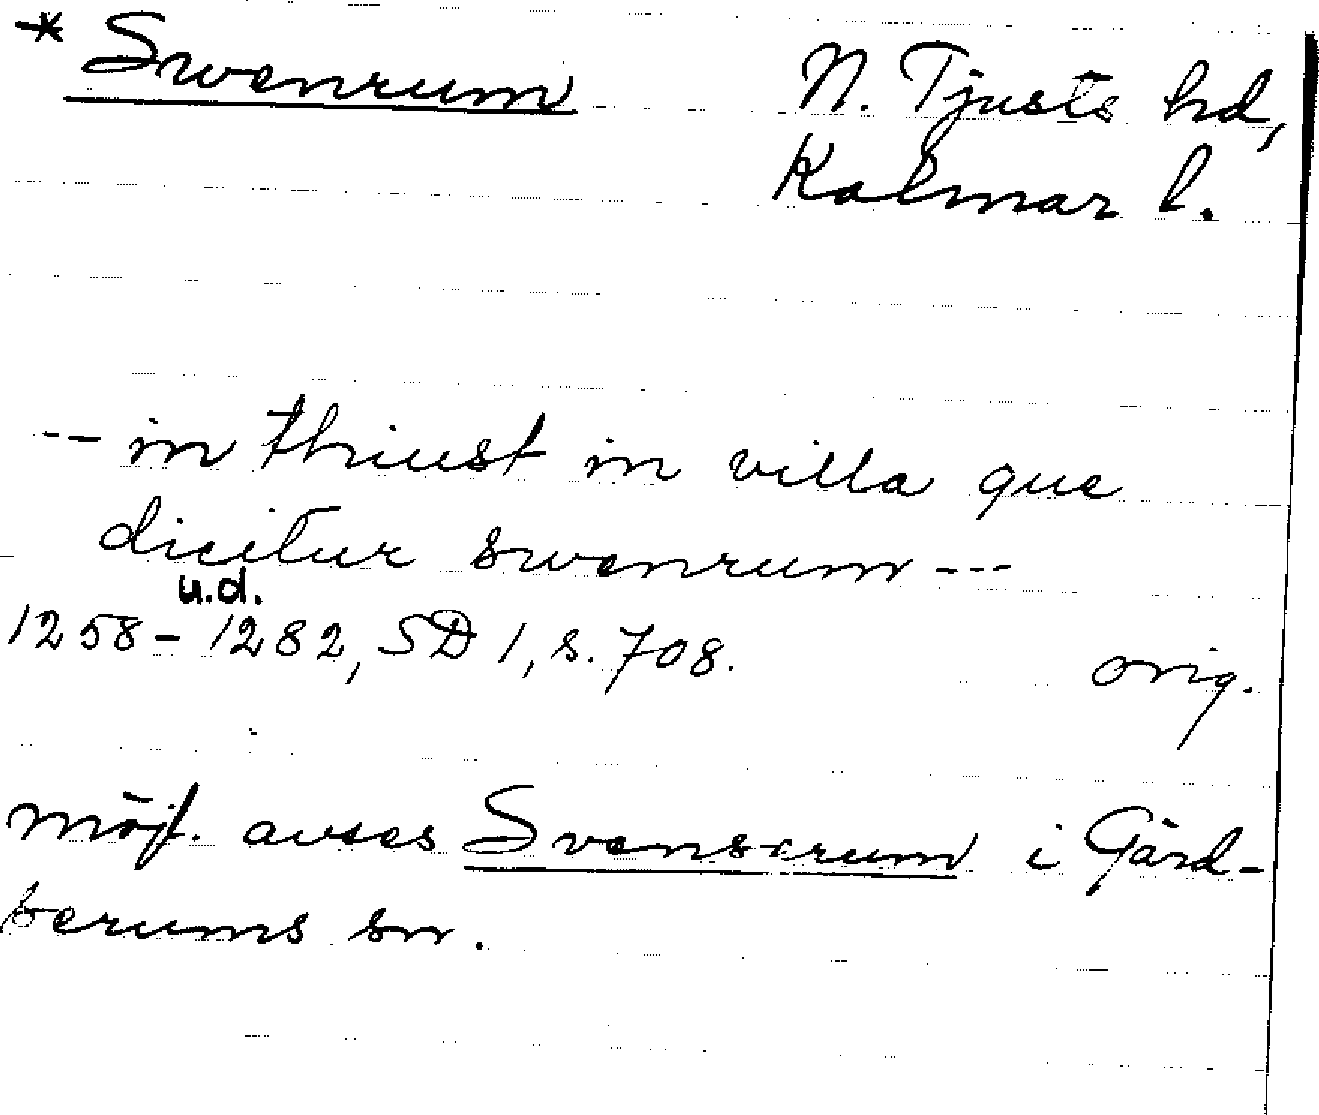 * Swenrum N. Tjusts hd,
Kalmar l.
-- in thiust in villa que
dicitur swenrum ---
u.d.
1258-1282, SD 1, s. 708. orig.
Möjl. avses Svenserum i Gärd-
serums sn.